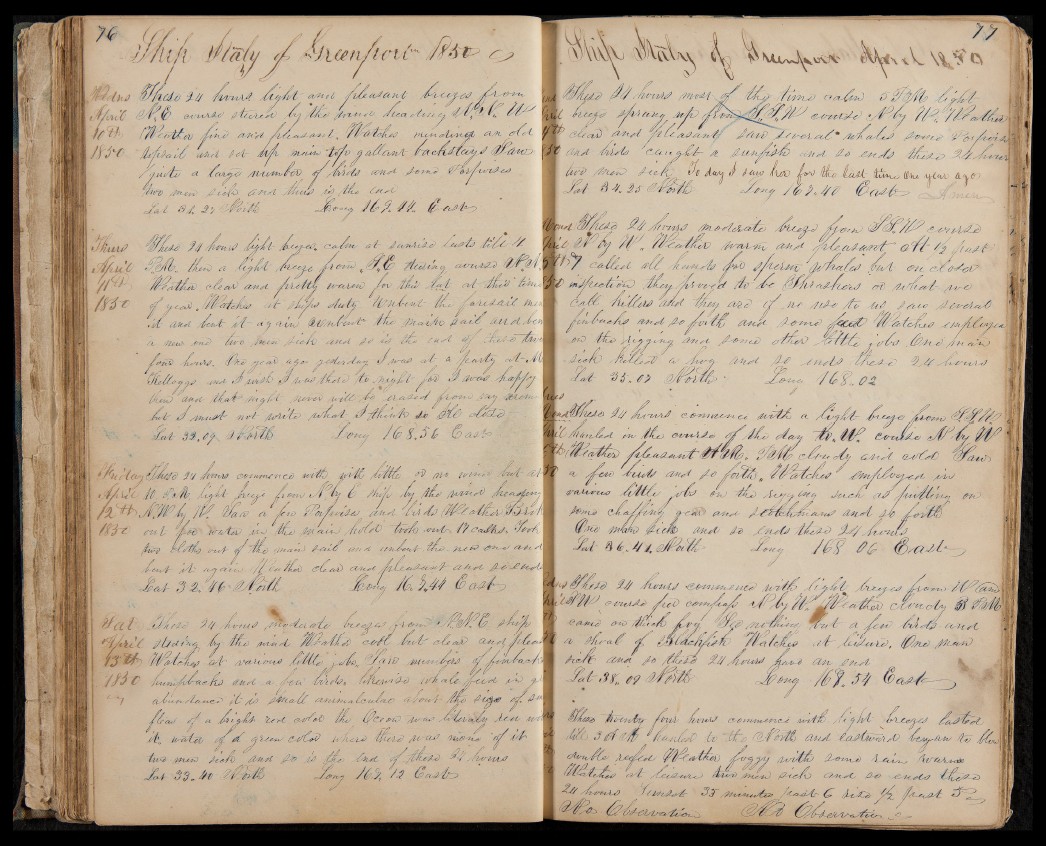 76
Ship Italy of Greenport 1850
These 24 hours light and pleasant breezes from
April N.E course stered by the wind heading
10th Weather fine and pleasant. Watches mending an old
1850 topsail and set up main top gallant backstays Saw
quite a large number of birds and some Porpoises
two men sick and thus is the end
Lat 31.27 North Long 169.14 East
Thurs These 24 hours light began calm at sunrise lasts till 4
April P.M. then a light breeze from S.E stering course
11th Weather clear and pretty warm for this Lat at this time
1850 of year. Watches at ships duty Unbent the foresail
and bent it again unbent the main sail and
a new one two men sick and so is the end of these
four hours. One year ago yesterday I was at a party at
Kelloggs and I wish I was there to night for I was happy
then and that night never will be erased from my
but I must not write what I think so Ile close
Lat 32.09 North Long 168.56 East
Friday These 24 hours commence with little or no wind but at
April P.M light breeze from N by E ship by the wind heading
12th N.W by W. Saw a few Porpoises and birds Weather
1850 out for water in the main hold took out 17 casks. Took
two cloths out of the main sail and unbent the new one and
bent it again Weather clear and pleasant and so ends
Lat 32.46 North Long 169.44 East
Sat These 24 hours moderate breezes from N.N.E ship
April steering by the wind Weather cool but clear and
13th Watches at various little jobs. Saw numbers of finbacks
1850 humpbacks and a few birds. likewise whale feed in
abundance it is small animalculae about the size of
fleas of a bright red color the Ocean was literaly red
the water of a green color where there was none of it
two men sick and so is the end of these 24 hours
Lat 33.40 North Long 169.12 East
77
Ship Italy of Greenport April 1850
These 24 hours most of the time calm 5 P.M light
breeze sprung up from S.S.W course N by W. Weather
clear and pleasant saw several whales some Porpoises
and birds caught a sunfish and so ends these 24 hours
two men sick To day I saw her for the last time One year ago
Lat 34.25 North Long 167.40 East Amen
These 24 hours moderate breeze from S.S.W course
N by W. Weather warm and pleasant At 1/2 past
7 called all hands for sperm whales but on closer
inspection they proved to be Thrashers or what we
call killers and they are of no use to us, saw several
finbacks and so forth and some feed Watches employed
on the rigging and some other little jobs One man
sick killed a hog and so ends these 24 hours
Lat 35.07 North Long 168.02
These 24 hours commence with a light breeze from
hauled in the course of the day to W. course N by W
Weather pleasant A.M. P.M cloudy and cold Saw
a few birds and so forth. Watches employed in
various little jobs on the rigging such as putting on
some chaffing gear and so forth
One man sick and so ends these 24 hours
Lat 36.41 North Long 168 06 East
These 24 hours commence with light breezes from W and
S W course per compass N by W. Weather cloudy P.M
came on thick fog See nothing but a few birds and
a shoal of Blackfish Watches at leisure. One man
sick and so these 24 hours have an end
Lat 38.09 North Long 167.54 East
These twenty four hours commence with light breezes lasted
till 3 hauled to the North and eastward began to blow
double reefed Weather foggy with some rain
Watches at leisure two men sick and so ends these
24 hours Sunset 35 minutes past 6 rise 1/2 past 5
No Observation No Observation